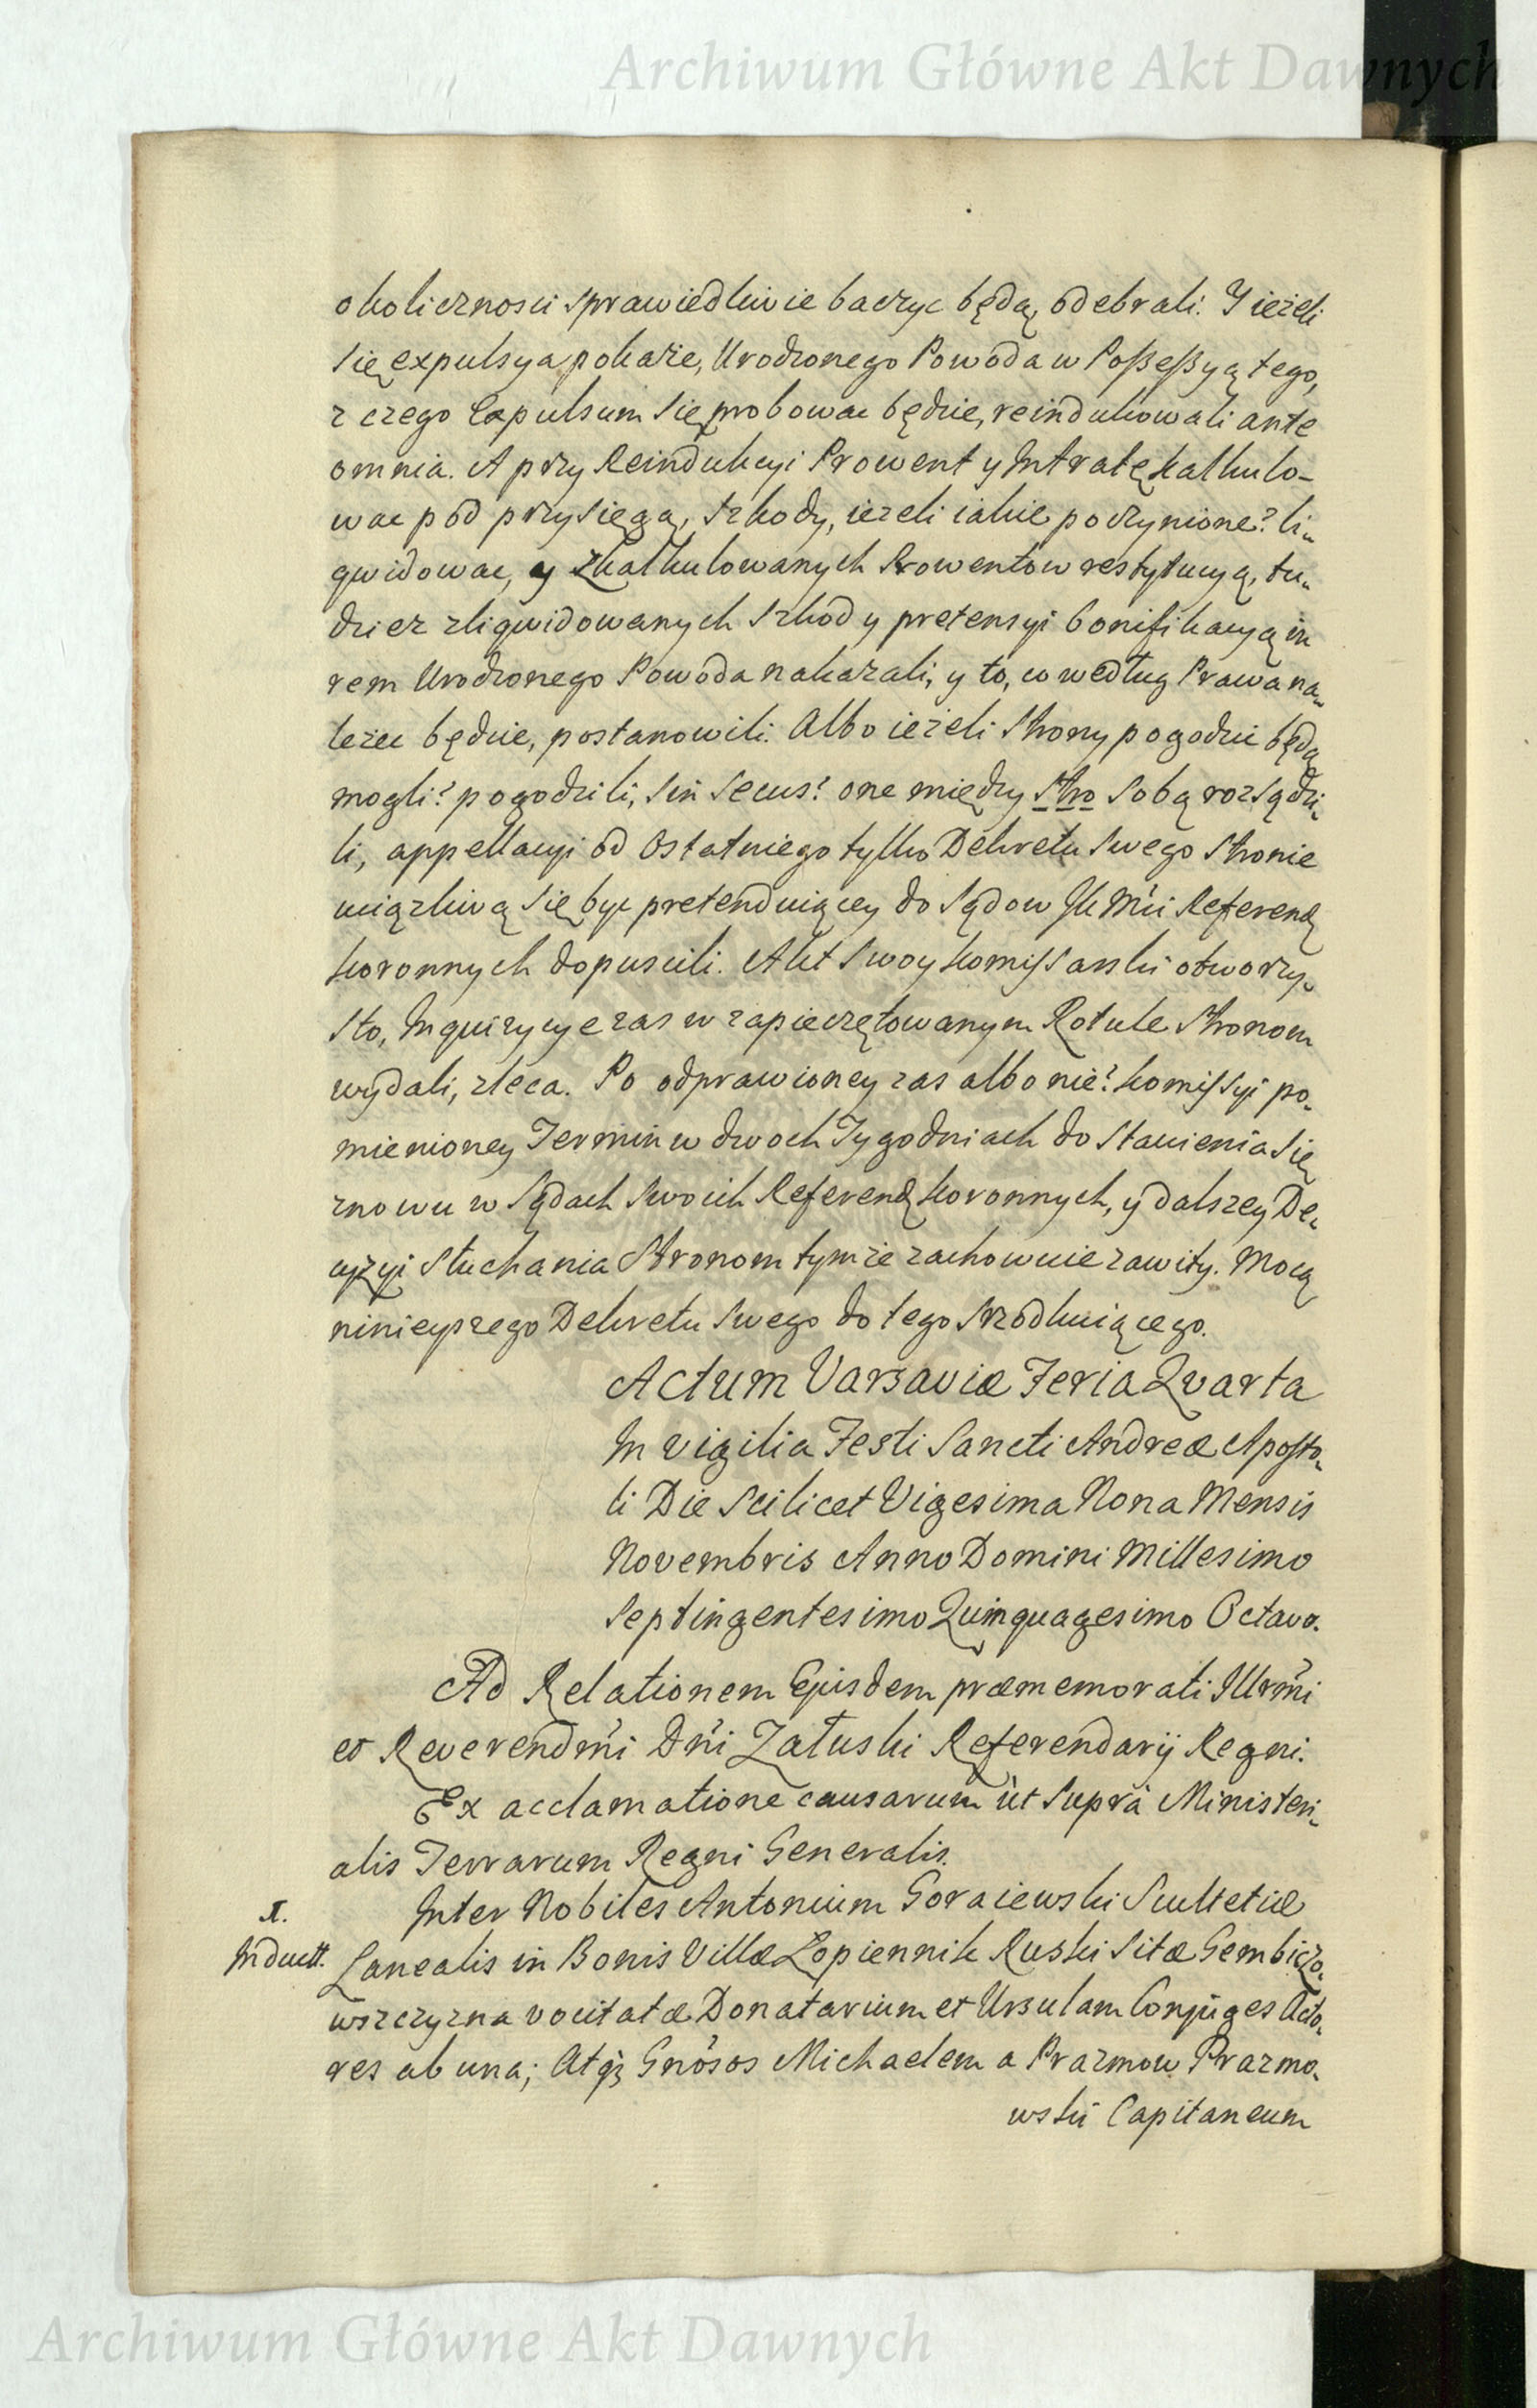 Archiwum Główne Akt Dawnych
okolicznosci sprawiedliwie baczyc będą, odebrali. Y ieżeli
się expulsya pokaże, Urodzonego Powoda w Poßeßyą tego,
z czego Expulsum się probowac będzie, reindukowali ante
omnia. A przy Reindukcyi Prowent y Intratę kalkulo-
wac pod przysięgą, szkody, ieżeli iakie poczynione? li-
qwidowac, y zkalkulowanych Prowentow restytucyą, tu-
dzież zliqwidowanych szkod y pretensyi bonifikacyą in
rem Urodzonego Powoda nakazali, y to, co według Prawa na-
leżec będzie, postanowili. Albo ieżeli Strony pogodzic będą
mogli? pogodzili, sin secus? one między stro sobą rozsądzi-
li, appellacyi od ostatniego tylko Dekretu swego Stronie
uciążliwą się byc pretenduiącey do Sądow JK Mci Referend
Koronnych dopuscili. Akt swoy Kommissarski otworzy-
sto, Inquizycye zas w zapieczętowanym Rotule Stronom
wydali, zleca. Po odprawioney zas albo nie? Komissyi po-
mienioney Termin w dwoch Tygodniach do stawienia się
znowu w Sądach swoich Referend Koronnych, y dalszey De-
cyzyi słuchania Stronom tymże zachowuie zawity. Mocą
ninieyszego Dekretu swego do tego srzodkuiącego.
Actum Varsaviæ Feria Qvarta
In vigilia Festi Sancti Andreæ Aposto-
li Die scilicet Vigesima Nona Mensis
Novembris Anno Domini Millesimo
Septingentesimo Quinquagesimo Octavo.
Ad Relationem Ejusdem præmemorati Illrmi
et Reverendmi Dni Załuski Referendarij Regni.
Ex acclamatione causarum ut supra Ministeri-
alis Terrarum Regni Generalis.
Inter Nobiles Antonium Goraiewski Scultetiæ
Induct. Lanealis in Bonis Villæ Łopiennik Ruski sitæ Gembiczo-
wszczyzna vocitatæ Donatarium et Ursulam Conjuges Acto-
res ab una; Atq Gnosos Michaelem a Prazmow Prazmo-
wski Capitaneum
Archiwum Główne Akt Dawnych